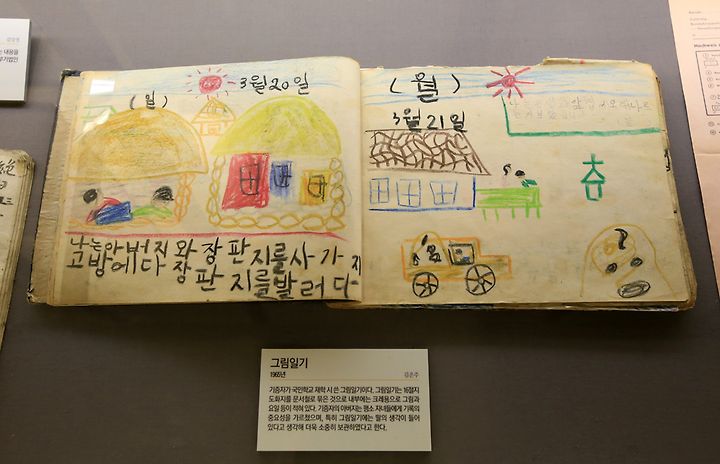 3월20일
(일)
나는아버지와장판지를사가지
고방에다장판지를발러다
(월)
3월21일
나는
그림일기
1965년
김은주
기증자가 국민학교 재학 시 쓴 그림일기이다. 그림일기는 16절지
도화지를 문서철로 묶은 것으로 내부에는 크레용으로 그림과
요일 등이 적혀 있다. 기증자의 아버지는 평소 자녀들에게 기록의
중요성을 가르쳤으며, 특히 그림일기에는 딸의 생각이 들어
있다고 생각해 더욱 소중히 보관하였다고 한다.